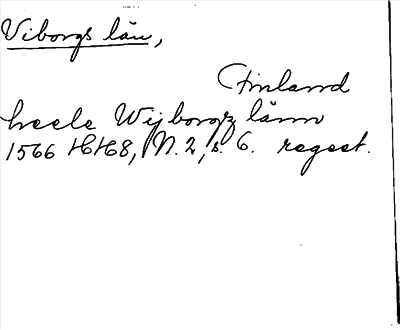 Viborgs län,
Finland
heele Wijborgz länn
1566 HH68, N. 2, s. 6. regest.